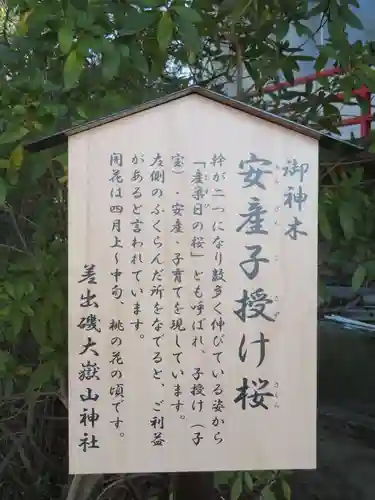 御神木
安産子授け桜
あんざんこさずけさくら
幹が二つになり数多く伸びている姿から
「産巣日の桜」とも呼ばれ、子授け（子
むすび
宝）・安産・子育てを現しています。
左側のふくらんだ所をなでると、ご利益
があると言われています。
開花は四月上〜中旬、桃の花の頃です。
差出磯大嶽山神社